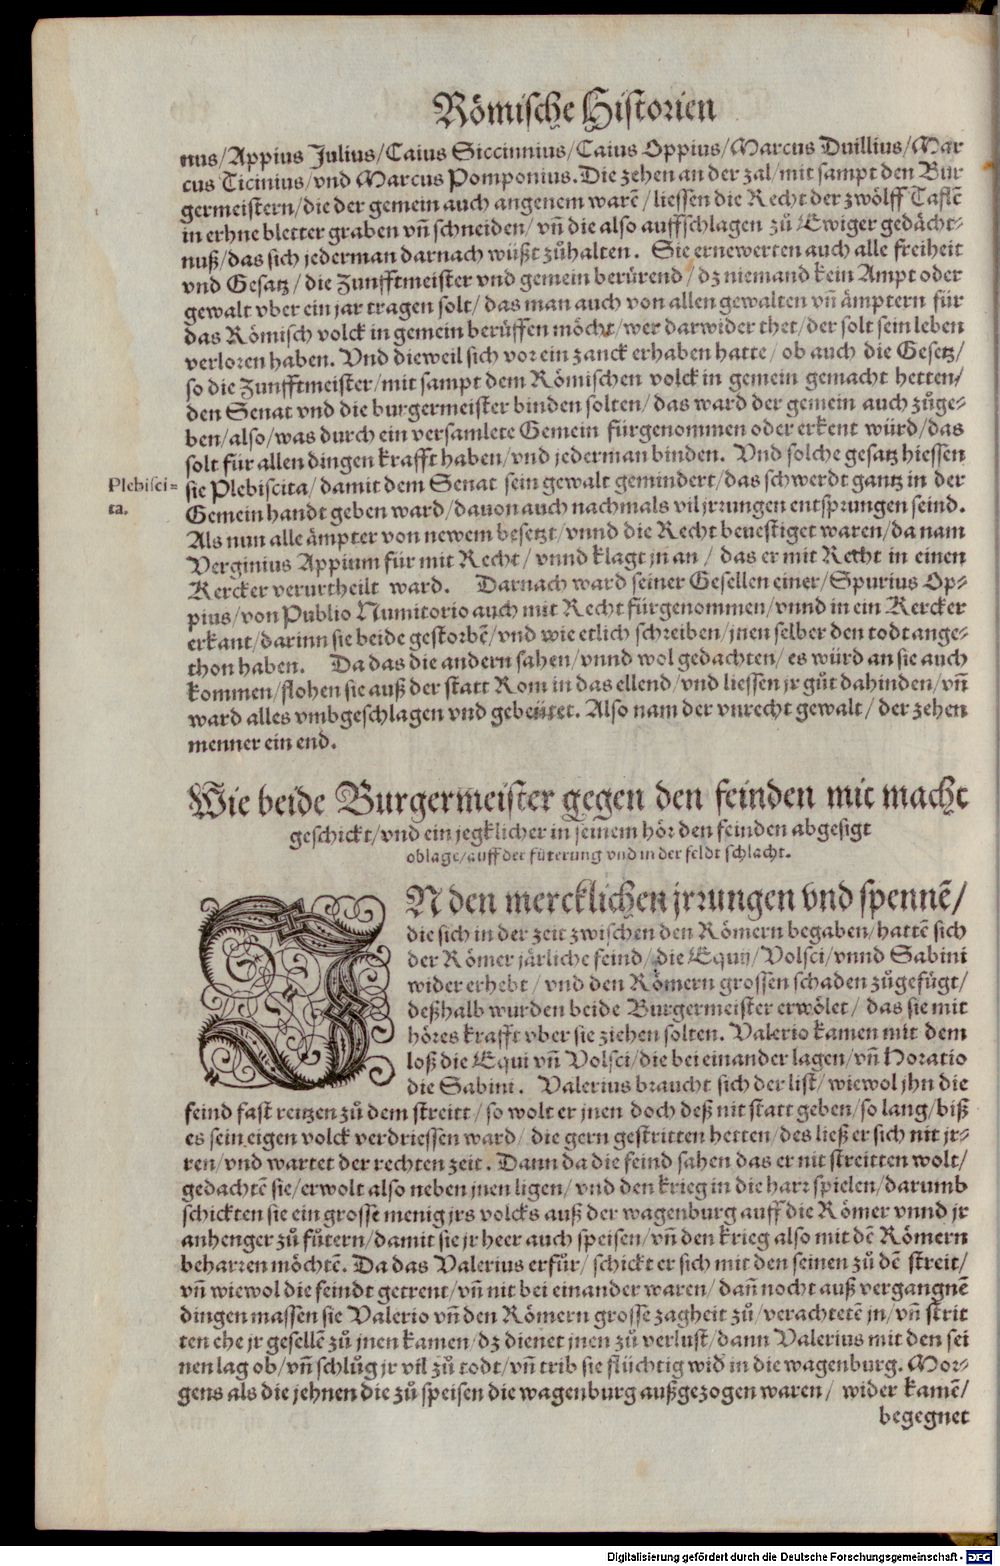 Römische Historien
nus/Appius Julius/Caius Siccinnius/Caius Oppius/Marcus Duillius/Mar
cus Ticinius/vnd Marcus Pomponius. Die zehen an der zal/mit sampt den Bur
germeistern/die der gemein auch angenem warē/liessen die Recht der zwölff Taflē
in erhne bletter graben vñ schneiden/vñ die also auffschlagen zů Ewiger gedächt-
nuß/das sich jederman darnach wüßt zůhalten. Sie ernewerten auch alle freiheit
vnd Gesatz/die Zunfftmeister vnd gemein berürend/dz niemand kein Ampt oder
gewalt vber ein jar tragen solt/das man auch von allen gewalten vñ ämptern für
das Römisch volck in gemein berůffen möcht/wer darwider thet/der solt sein leben
verloren haben. Vnd dieweil sich vor ein zanck erhaben hatte/ob auch die Gesetz/
so die Zunfftmeister/mit sampt dem Römischen volck in gemein gemacht hetten/
den Senat vnd die burgermeister binden solten/das ward der gemein auch zůge-
ben/also/was durch ein versamlete Gemein fürgenommen oder erkent würd/das
solt für allen dingen krafft haben/vnd jederman binden. Vnd solche gesatz hiessen
Plebisci-
ta.
sie Plebiscita/damit dem Senat sein gewalt gemindert/das schwerdt gantz in der
Gemein handt geben ward/dauon auch nachmals vil jrrungen entsprungen seind.
Als nun alle ämpter von newem besetzt/vnnd die Recht beuestiget waren/da nam
Verginius Appium für mit Recht/vnnd klagt jn an/das er mit Recht in einen
Kercker verurtheilt ward. Darnach ward seiner Gesellen einer/Spurius Op-
pius/von Publio Numitorio auch mit Recht fürgenommen/vnnd in ein Kercker
erkant/darinn sie beide gestorbē/vnd wie etlich schreiben/jnen selber den todt ange-
thon haben. Da das die andern sahen/vnnd wol gedachten/es würd an sie auch
kommen/flohen sie auß der statt Rom in das ellend/vnd liessen jr gůt dahinden/vñ
ward alles vmbgeschlagen vnd gebeütet. Also nam der vnrecht gewalt/der zehen
menner ein end.
Wie beide Burgermeister gegen den feinden mit macht
geschickt/vnd ein jegklicher in seinem hör den feinden abgesigt
oblage/auff der füterung vnd in der feldt schlacht.
IN den mercklichen jrrungen vnd spennē/
die sich in der zeit zwischen den Römern begaben/hattē sich
der Römer järliche feind/die Equij/Volsci/vnnd Sabini
wider erhebt/vnd den Römern grossen schaden zůgefügt/
deßhalb wurden beide Burgermeister erwölet/das sie mit
höres krafft vber sie ziehen solten. Valerio kamen mit dem
loß die Equi vñ Volsci/die bei einander lagen/vñ Horatio
die Sabini. Valerius braucht sich der list/wiewol jhn die
feind fast reitzen zů dem streitt/so wolt er jnen doch deß nit statt geben/so lang/biß
es sein eigen volck verdriessen ward/die gern gestritten hetten/des ließ er sich nit jr-
ren/vnd wartet der rechten zeit. Dann da die feind sahen das er nit streitten wolt/
gedachtē sie/er wolt also neben jnen ligen/vnd den krieg in die harr spielen/darumb
schickten sie ein grosse menig jrs volcks auß der wagenburg auff die Römer vnnd jr
anhenger zů fůtern/damit sie jr heer auch speisen/vñ den krieg also mit dē Römern
beharren möchtē. Da das Valerius erfůr/schickt er sich mit den seinen zů dē streit/
vñ wiewol die feindt getrent/vñ nit bei einander waren/dañ nocht auß vergangnē
dingen massen sie Valerio vñ den Römern grosse zagheit zů/verachtetē jn/vñ strit
ten ehe jr gesellē zů jnen kamen/dz dienet jnen zů verlust/dann Valerius mit den sei
nen lag ob/vñ schlůg jr vil zů todt/vñ trib sie flüchtig wid in die wagenburg. Mor-
gens als die jehnen die zů speisen die wagenburg außgezogen waren/wider kamē/
begegnet
Digitalisierung gefördert durch die Deutsche Forschungsgemeinschaft - DFG